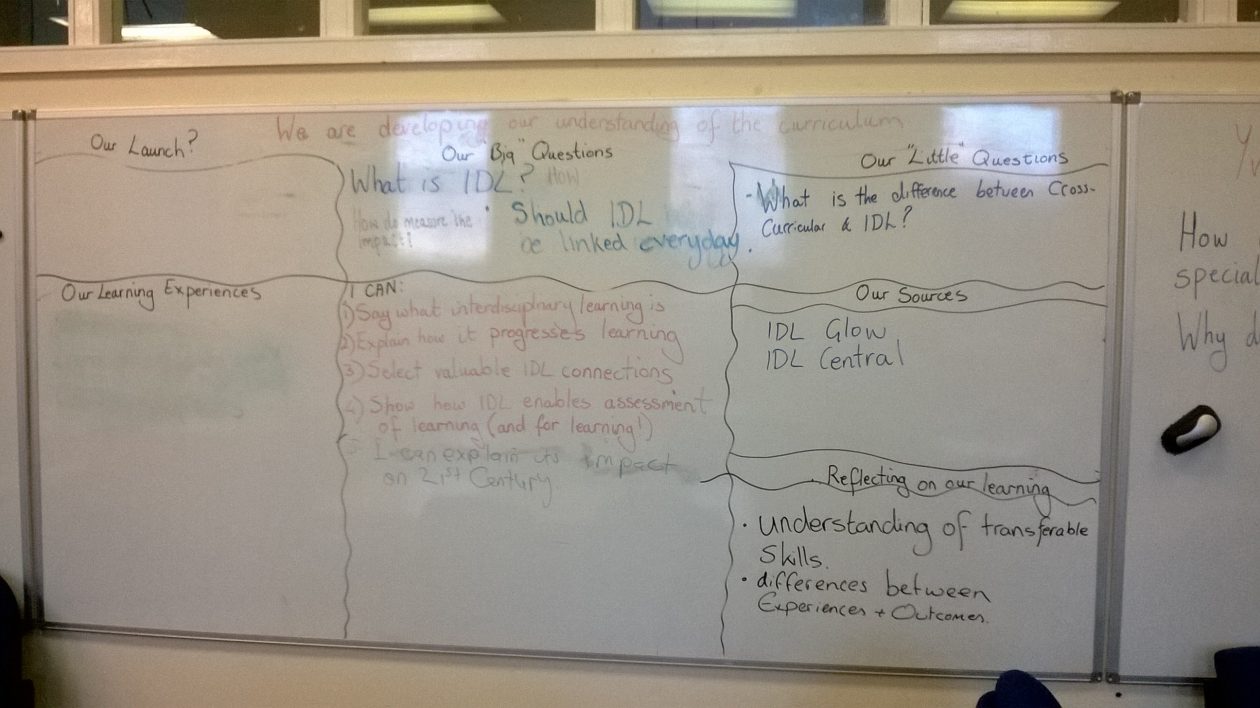 We are developing our understanding of the curriculum
Our Launch?
Our "Big" Questions
What is IDL? How
How do measure the
impact?
Should IDL
be linked everyday.
Our "Little" Questions
- What is the difference between Cross-
Curricular & IDL?
Our Learning Experiences
I CAN:
1) Say what interdisciplinary learning is
2) Explain how it progresses learning
3) Select valuable IDL connections
4) Show how IDL enables assessment
of learning (and for learning!)
I can explain its impact
on 21st Century
Our Sources
IDL Glow
IDL Central
Reflecting on our learning
• understanding of transferable
Skills.
• differences between
Experiences + Outcomes.
How
special
Why d